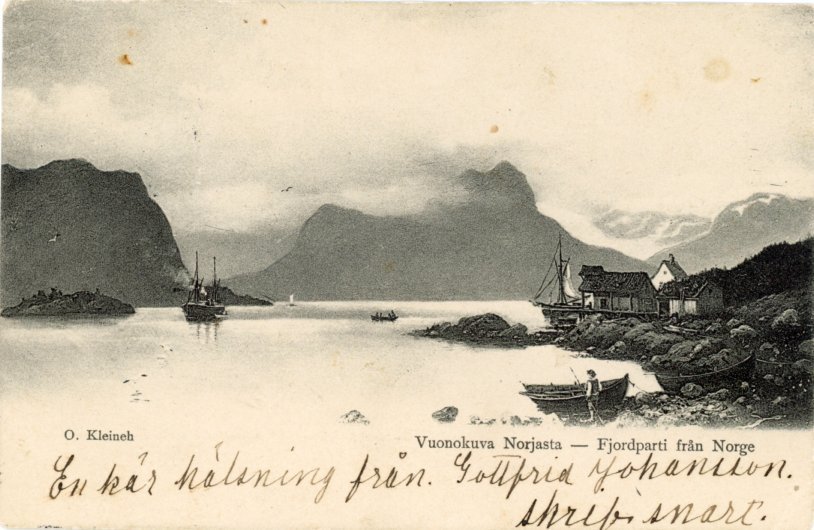 O. Kleineh
Vuonokuva Norjasta — Fjordparti från Norge
En kär hälsning från. Gottfrid Johansson.
skrif snart.